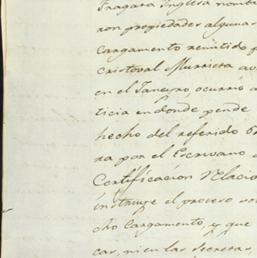 Fragata Inglesa nomb
ron propiedades algunas
Cargamento remitido p
Cristoval Murrieta av
en el Janeyro, ocurrio a
ticia en donde pende
hecho del referido
da por el Escrivano
Certificacion Relacio
instruye el proceso so
cho Cargamento, y que
cas, ni en las Secretas,